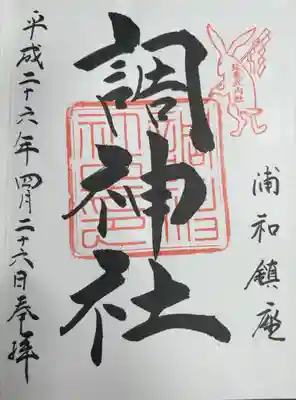 浦和鎮座
調神社
平成二十六年四月二十六日奉拝